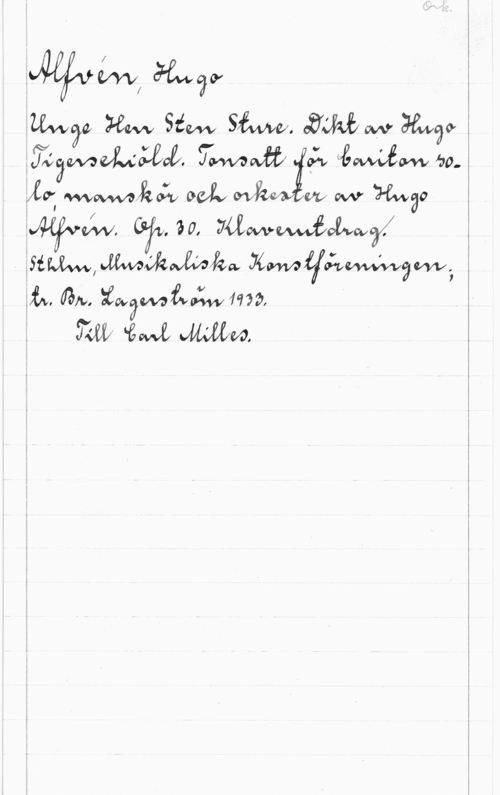 Ork.
Alfvén, Hugo
Unge Herr Sten Sture. Dikt av Hugo
Tigerschiöld. Tonsatt för bariton so-
lo, manskör och orkester av Hugo
Alfvén. Op. 30. Klaverutdrag.
Sthlm, Musikaliska Konstföreningen;
tr. Br. Lagerström 1933.
Till Carl Milles.